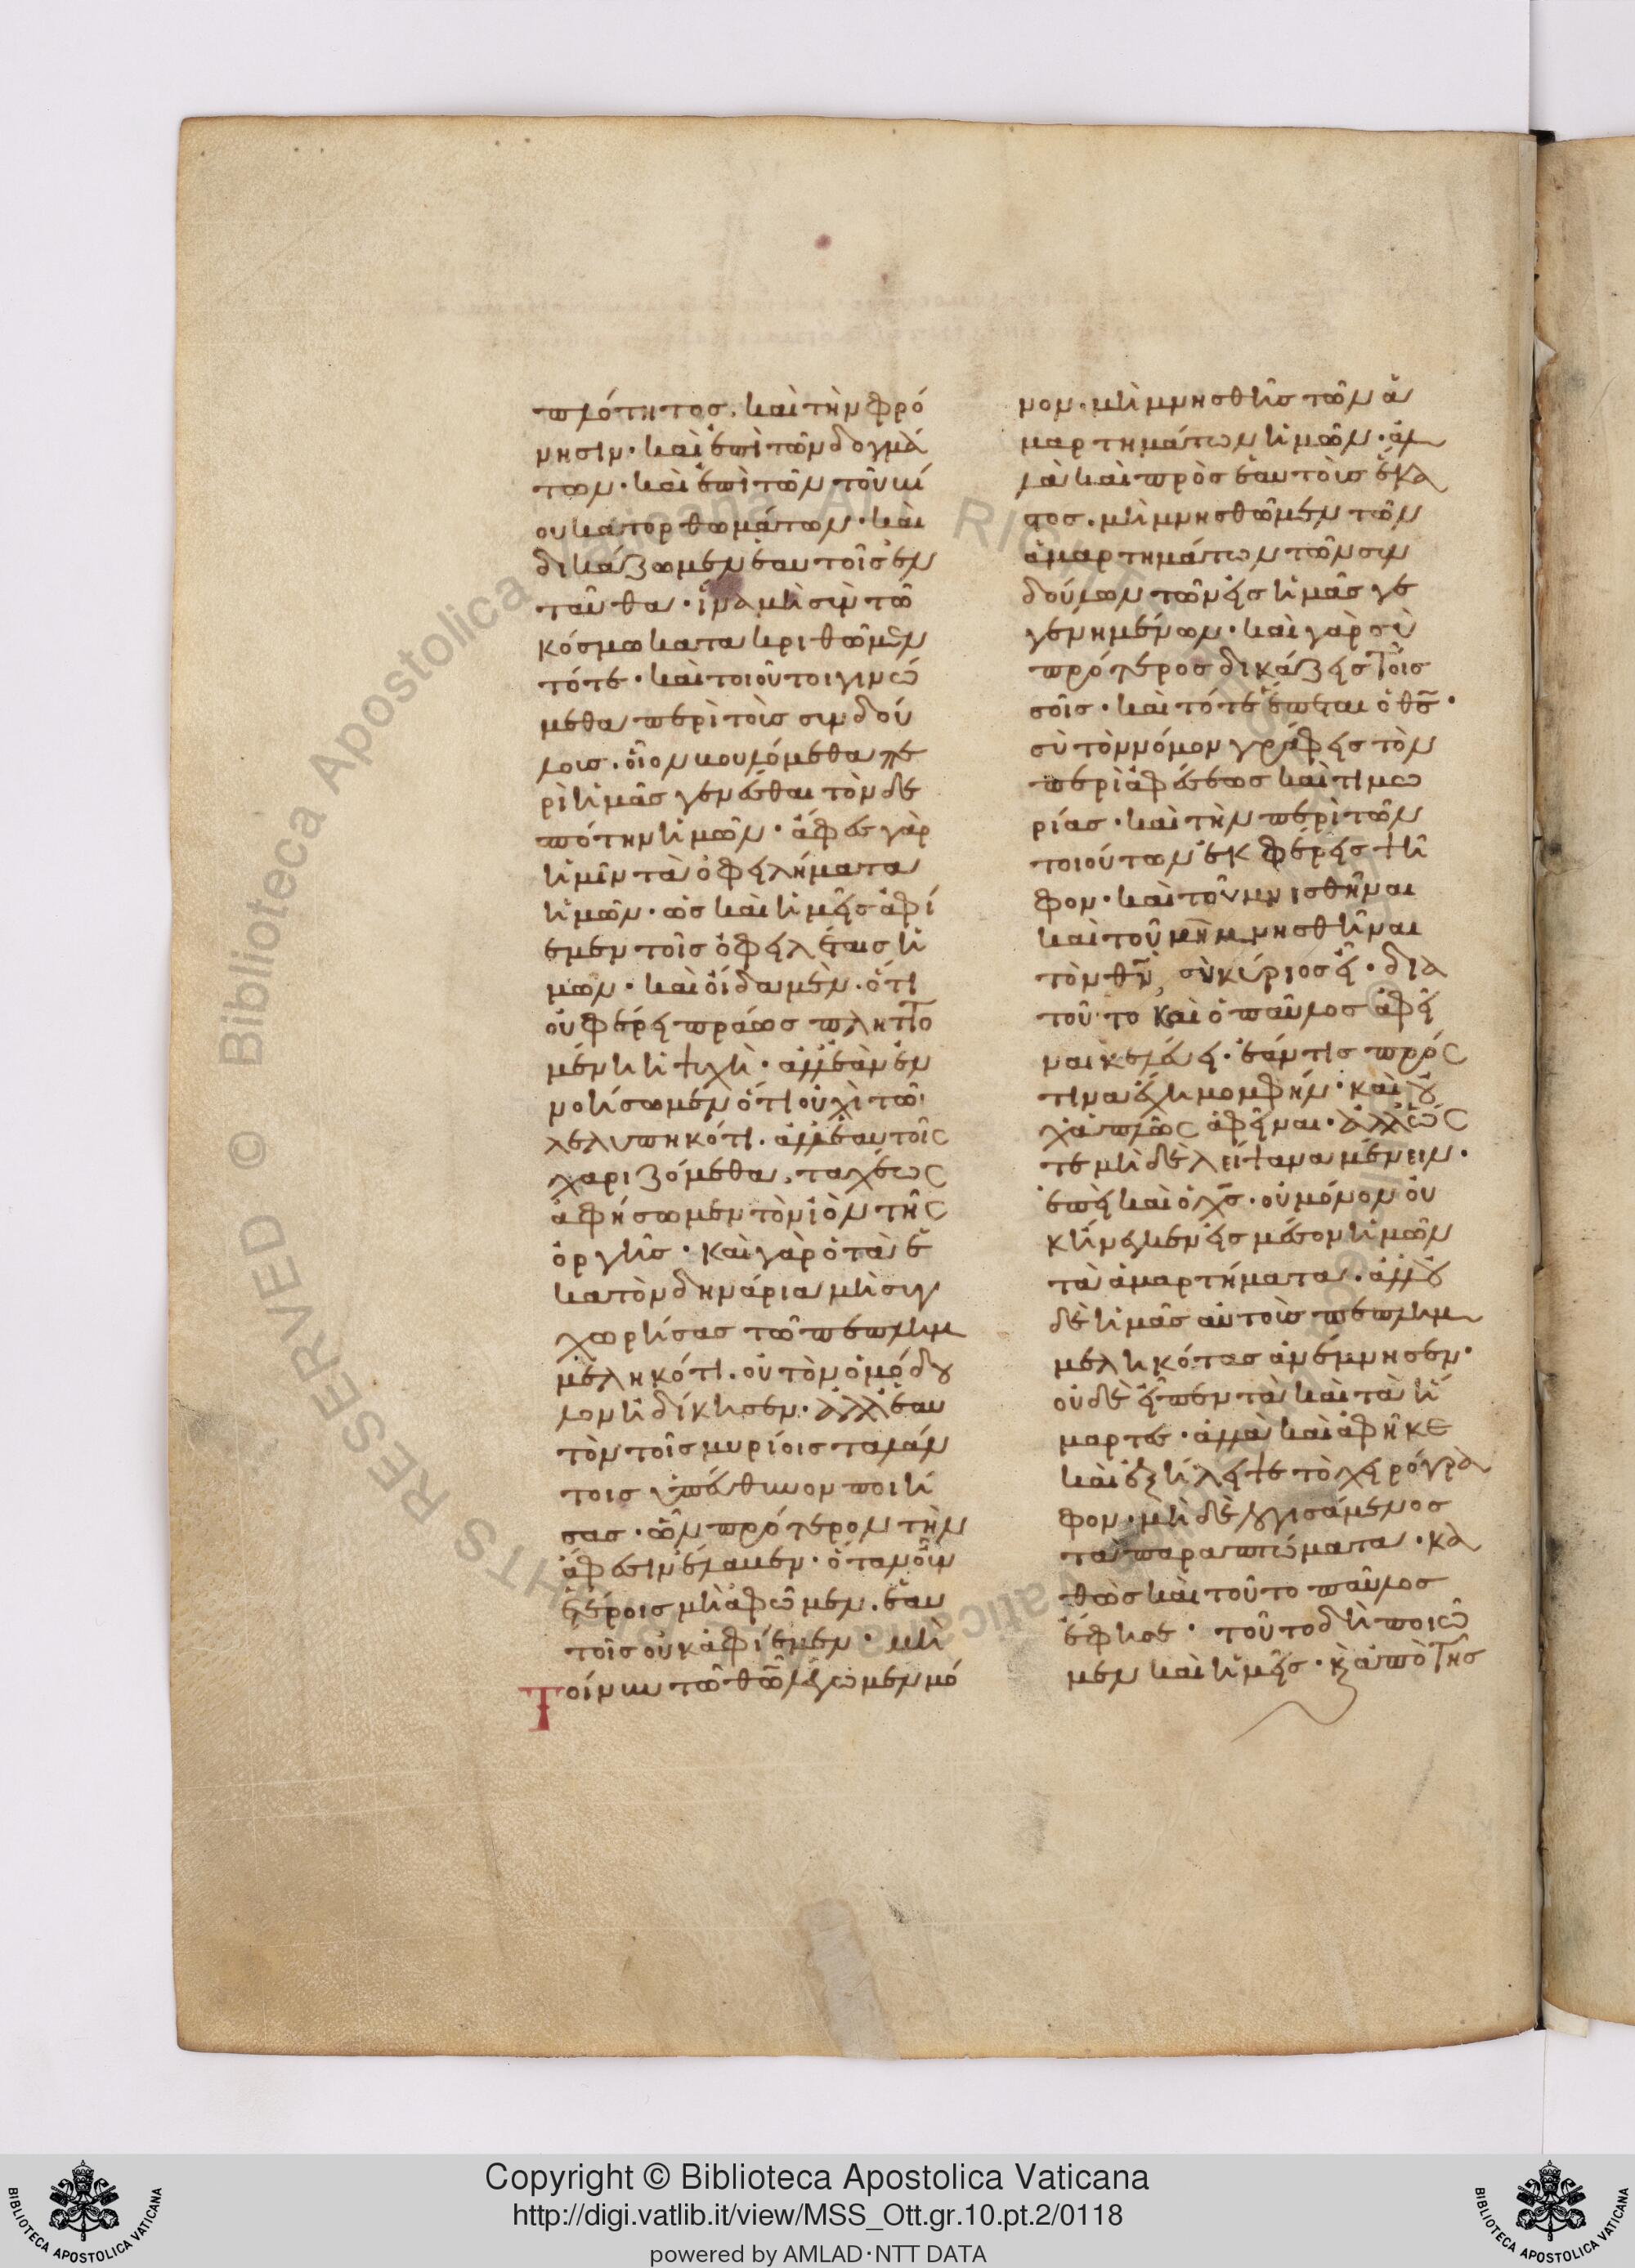 πλότητος. καὶ τὴν φρό
νησιν· καὶ ἐπὶ τῶν δογμά
των· καὶ ἐπὶ τῶν τοῦ βί
ου κατορθωμάτων· καὶ
δικάζωμεν ἑαυτοῖς ἐν
ταῦθα· ἵνα μὴ σὺν τῶ
κόσμω κατακριθῶμεν
τότε· καὶ τοιοῦτοι γινώ
μεθα περὶ τοὺς συνδού
λους. οἷον βουλόμεθα πε
ρὶ ἡμᾶς γενέσθαι τὸν δε
πότην ἡμῶν· ἄφες γὰρ
ἡμῖν τὰ ὀφειλήματα
ἡμῶν· ὡς καὶ ἡμεῖς ἀφί
εμεν τοῖς ὀφειλέταις ἡ
μῶν· καὶ οἴδαμεν. ὅτι
οὐ φέρει πράως πληττο
μένη ἡ ψυχὴ· ἀλλ' ἐὰν ἐν
νοήσωμεν ὅτι οὐχὶ τῶ
λελυπηκότι. ἀλλ' ἑαυτοῖς
χαριζόμεθα, ταχέως
ἀφήσωμεν τὸν ἰὸν τῆς
ὀργῆς· καὶ γὰρ ὁ τὰ ἑ
κατὸν δηνάρια μὴ συγ
χωρήσας τῶ πεπλημ
μεληκότι. οὐ τὸν ὁμόδου
λον ἠδίκησεν· ἀλλ' ἑαυ
τὸν τοῖς μυρίοις ταλάν
τοις ὑπεύθυνον ποιή
σας· ὧν πρότερον τὴν
ἄφεσιν ἔλαβεν· ὅταν οὖν
ἑτέροις μὴ ἀφῶμεν. ἑαυ
τοῖς οὐκ ἀφίεμεν· μὴ
Τοίνυν τῶ θῶ λέγωμεν μό
νον. μὴ μνησθῆς τῶν ἁ
μαρτημάτων ἡμῶν· ἀλ
λὰ καὶ πρὸς ἑαυτοὺς ἕκα
στος. μὴ μνησθῶμεν τῶν
ἁμαρτημάτων τῶν συν
δούλων τῶν εἰς ἡμᾶς γε
γενημένων· καὶ γὰρ σὺ
πρότερος δικάζεις τοῖς
σοῖς· καὶ τότε ἕπεται ὁ θς·
σὺ τὸν νόμον γράφεις τὸν
περὶ ἀφέσεως καὶ τιμω
ρίας· καὶ τὴν περὶ τῶν
τοιούτων ἐκφέρεις ψῆ
φον· καὶ τοῦ μνησθῆναι
καὶ τοῦ μὴ μνησθῆναι
τὸν θν, σὺ κύριος εἶ· δια
τοῦτο καὶ ὁ παῦλος ἀφεῖ
ναι κελεύει· ἐάν τις πρός
τινα ἔχη μομφήν· καὶ οὐ
χ ἁπλῶς ἀφεῖναι· ἀλλ' ὥς
τε μὴ δὲ λείψανα μένειν·
ἐπεὶ καὶ ὁ χς. οὐ μόνον οὐ
κ ἤνεγκεν εἰς μέσον ἡμῶν
τὰ ἁμαρτήματα. ἀλλ' οὐ
δὲ ἡμᾶς αὐτοὺς πεπλημ
μεληκότας ἀνέμνησεν·
οὐδὲ εἶπεν τὰ καὶ τὰ ἥ
μαρτες· ἀλλὰ καὶ ἀφῆκε
καὶ ἐξήλειψε τὸ χειρόγρα
φον· μὴ δὲ λογισάμενος
τὰ παραπτώματα· κα
θὼς καὶ τοῦτο παῦλος
ἔφησε· τοῦτο δὴ ποιῶ
μεν καὶ ἡμεῖς· κ ἀπὸ τῆς
Copyright © Biblioteca Apostolica Vaticana
http://digi.vatlib.it/view/MSS_Ott.gr.10.pt.2/0118
powered by AMLAD·NTT DATA